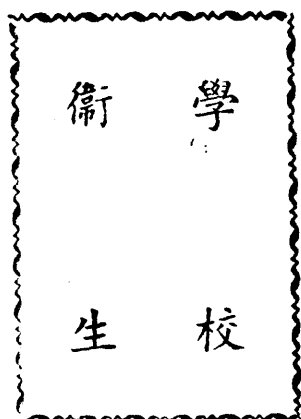 學校
衞生